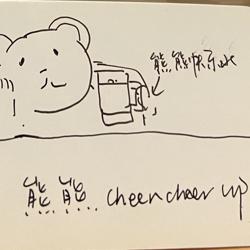 熊熊快乐水
熊熊 cheer cheer up